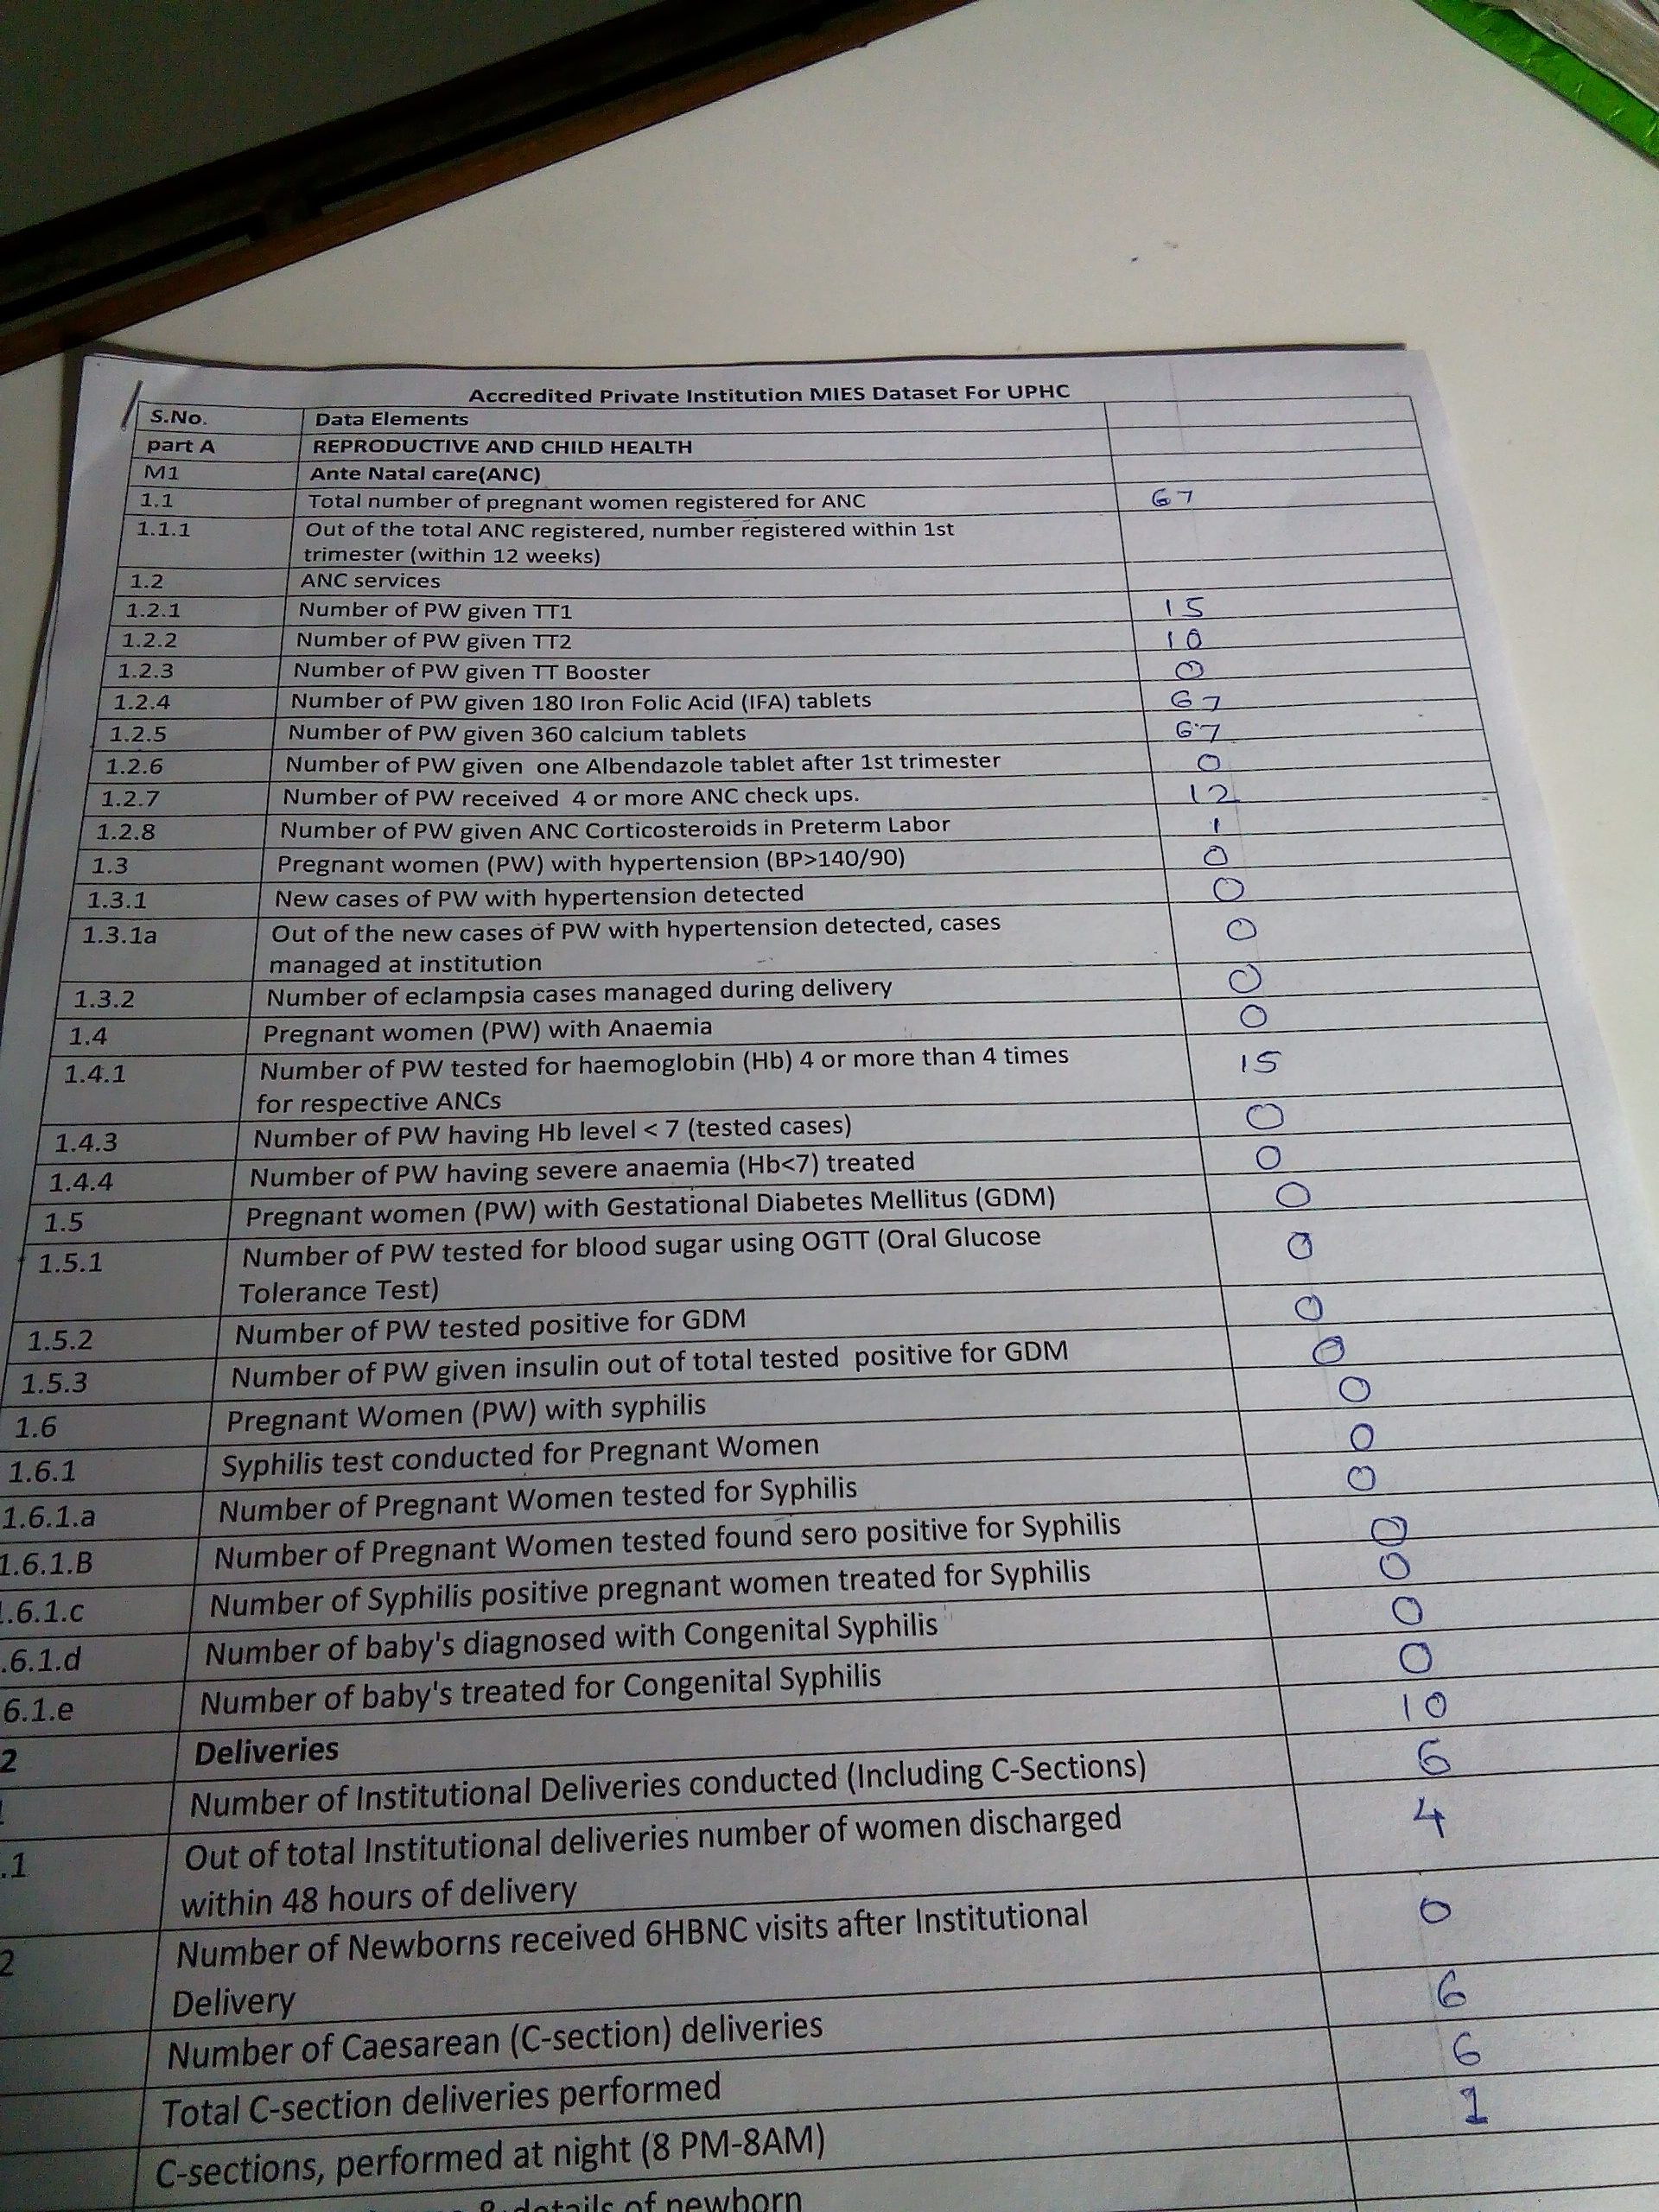 Accredited Private Institution MIES Dataset For UPHC
S.No. Data Elements
part A REPRODUCTIVE AND CHILD HEALTH
M1 Ante Natal care(ANC)
1.1 Total number of pregnant women registered for ANC 67
1.1.1 Out of the total ANC registered, number registered within 1st
trimester (within 12 weeks)
1.2 ANC services
1.2.1 Number of PW given TT1 15
1.2.2 Number of PW given TT2 10
1.2.3 Number of PW given TT Booster 0
1.2.4 Number of PW given 180 Iron Folic Acid (IFA) tablets 67
1.2.5 Number of PW given 360 calcium tablets 67
1.2.6 Number of PW given one Albendazole tablet after 1st trimester 0
1.2.7 Number of PW received 4 or more ANC check ups. 12
1.2.8 Number of PW given ANC Corticosteroids in Preterm Labor 1
1.3 Pregnant women (PW) with hypertension (BP>140/90) 0
1.3.1 New cases of PW with hypertension detected 0
1.3.1a Out of the new cases of PW with hypertension detected, cases 0
managed at institution
1.3.2 Number of eclampsia cases managed during delivery 0
1.4 Pregnant women (PW) with Anaemia 0
1.4.1 Number of PW tested for haemoglobin (Hb) 4 or more than 4 times 15
for respective ANCs
1.4.3 Number of PW having Hb level < 7 (tested cases) 0
1.4.4 Number of PW having severe anaemia (Hb<7) treated 0
1.5 Pregnant women (PW) with Gestational Diabetes Mellitus (GDM) 0
1.5.1 Number of PW tested for blood sugar using OGTT (Oral Glucose 0
Tolerance Test)
1.5.2 Number of PW tested positive for GDM 0
1.5.3 Number of PW given insulin out of total tested positive for GDM 0
1.6 Pregnant Women (PW) with syphilis 0
1.6.1 Syphilis test conducted for Pregnant Women 0
1.6.1.a Number of Pregnant Women tested for Syphilis 0
1.6.1.B Number of Pregnant Women tested found sero positive for Syphilis 0
.6.1.c Number of Syphilis positive pregnant women treated for Syphilis 0
.6.1.d Number of baby's diagnosed with Congenital Syphilis 0
6.1.e Number of baby's treated for Congenital Syphilis 0
2 Deliveries 10
Number of Institutional Deliveries conducted (Including C-Sections) 6
.1 Out of total Institutional deliveries number of women discharged 4
within 48 hours of delivery
2 Number of Newborns received 6HBNC visits after Institutional 0
Delivery
Number of Caesarean (C-section) deliveries 6
Total C-section deliveries performed 6
C-sections, performed at night (8 PM-8AM) 1
& details of newborn